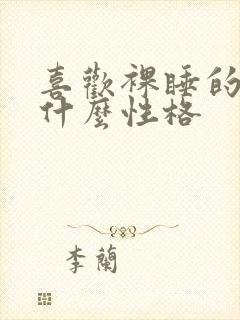 喜歡裸睡的
什麼性格
李蘭